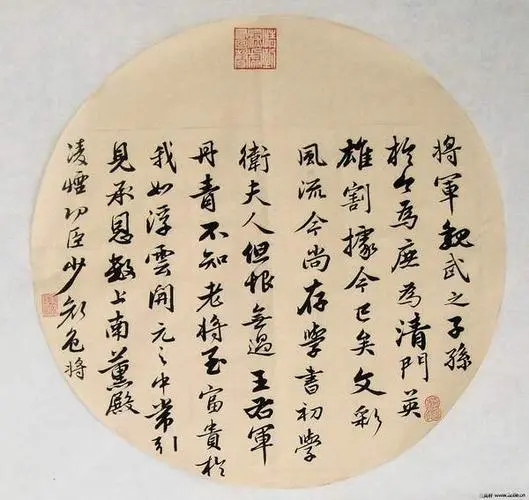 將軍魏武之子孫
於今為庶為清門英
雄割據今已矣文彩
風流今尚存學書初學
衛夫人但恨無過王右軍
丹青不知老將至富貴於
我如浮雲開元之中常引
見承恩數上南薰殿
凌煙功臣少顏色將